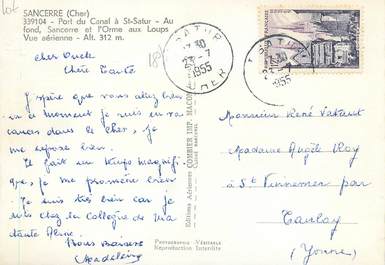 SANCERRE (Cher)
339104 - Port du Canal à St-Satur - Au
fond, Sancerre et l'Orme aux Loups
Vue aérienne - Alt. 312 m.
Cher Oncle
Chère Tante
J'espère que vous allez bien
en ce moment je suis en va
cances dans le cher, je
me repose bien.
Il fait un temps magnifi
que, je me promène bien
Je suis très bien car je
suis chez la collègue de ma
tante
Bons baisers
Madeleine
Editions Aériennes COMBIER IMP. MACON
PHOTOGRAPHIE VÉRITABLE
Reproduction Interdite
ST SATUR
17 30
23-7
1955
CHER
Monsieur René
Madame Angèle Roy
à St Vinnemer par
Tanlay
(Yonne)